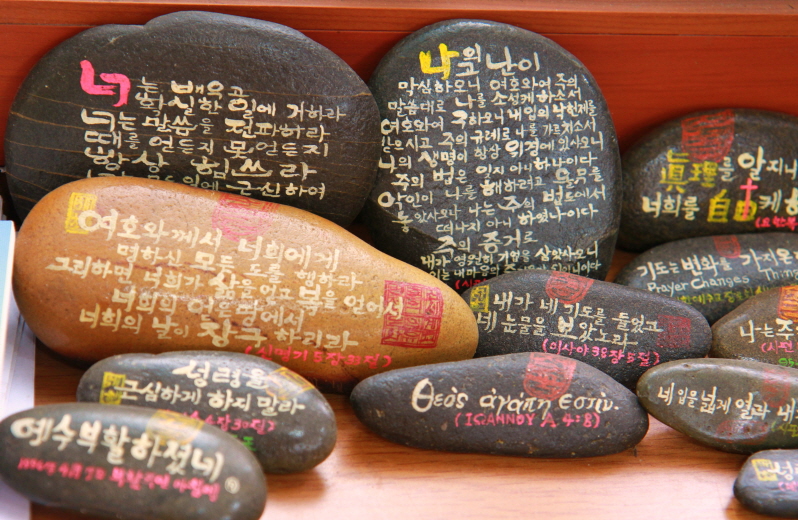 너는 배우고
확실한 일에 거하라
너는 말씀을 전파하라
때를 얻든지 못 얻든지
항상 힘쓰라
근신하여
나의
고난이
막심하오니 여호와여 주의
말씀대로 나를 소성케 하소서
여호와여 구하오니 내 입의 낙헌제를
받으시고 주의 규례로 나를 가르치소서
나의 생명이 항상 위경에 있사오니
주의 법은 잊지 아니하나이다
악인이 나를 해하려고 올무를
놓았사오나 나는 주의 법도에서
떠나지 아니하였나이다
주의 증거로
내가 영원히 기업을 삼았사오니
이는 내 마음의
眞理를 알지니
너희를 自由케 하
기도는 변화를 가지온
Prayer Changes Things
여호와께서 너희에게
명하신 모든 도를 행하라
그리하면 너희가 삶을 얻고 복을 얻어서
너희의 얻은 땅에서
너희의 날이 장구하리라
(신명기 5장 33절)
내가 네 기도를 들었고
네 눈물을 보았노라
(이사야 38장 5절)
나는 주
성령을
근심하게 하지 말라
장 30절)
Θεὸς ἀγάπη ἐστίν.
(ΙΩΑΝΝΟΥ Α 4:8)
네 입을 넓게 열라 내
예수 부활하셨네
부활주일 아침에